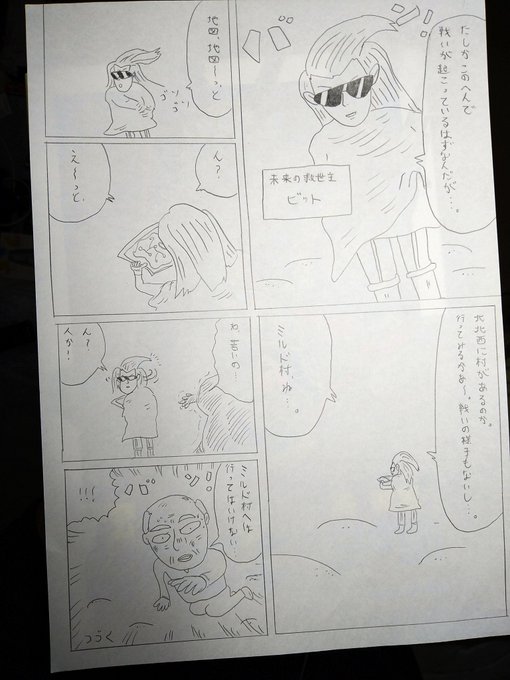 たしかこのへんで
戦いが起こっている
はずなんだが…。
バン
未来の救世主
ビット
地図、地図〜っと
ゴソ
ゴソ
ん？
え〜っと、
北北西に村があるのか。
行ってみるかな〜。戦いの様子もないし…。
ミルド村、ね…。
わ、若いの…
ん？
人か！？
ミルド村へは
行ってはいけない…
!!!
つづく